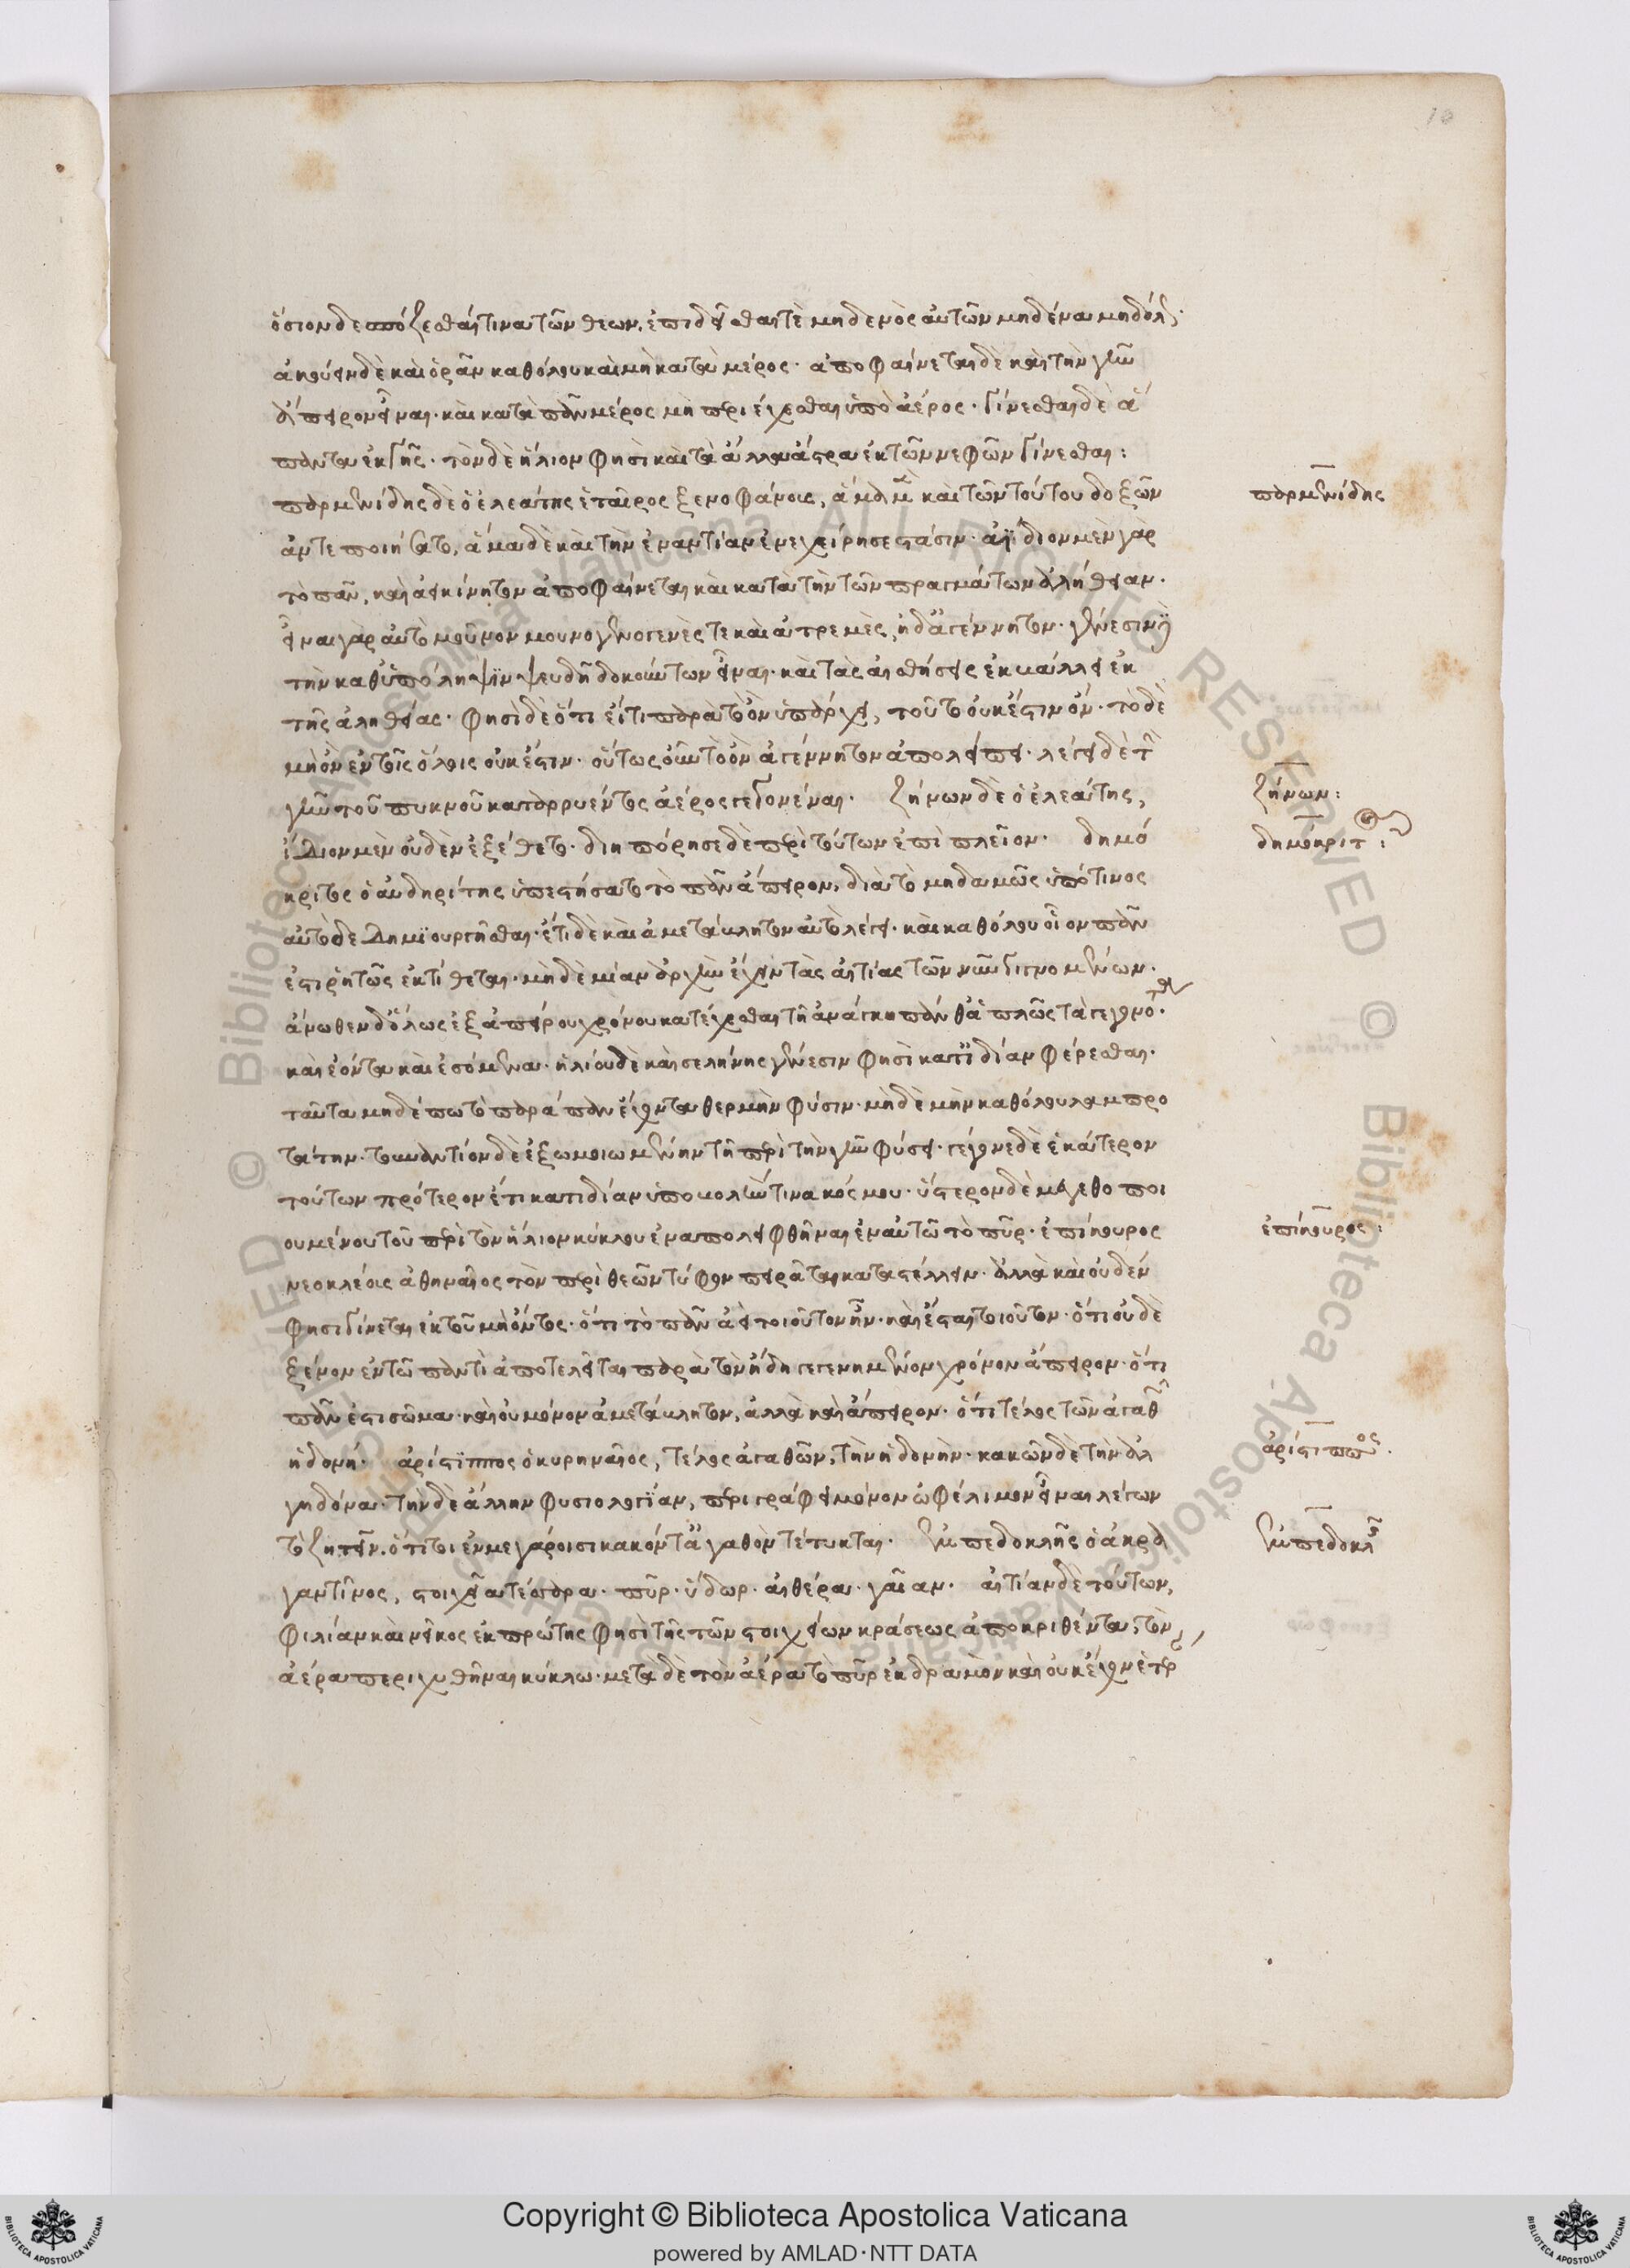 10
ὅσιον δεσπόζεσθαί τινα τῶν θεων, ἐπιδεῖσθαι τὲ μηδενὸς αὐτῶν μηδένα μηδόλς.
ἀκούειν δὲ καὶ ὁρᾶν καθόλου καὶ μὴ κατὰ μέρος. ἀποφαίνεται δὲ καὶ τὴν γῆν
ἄπειρον εἶναι. καὶ κατὰ πᾶν μέρος μὴ περιέχεσθαι ὑπὸ ἀέρος. γίνεσθαι δὲ ἅ
παντα ἐκ γῆς. τὸν δὲ ἥλιον φησὶ καὶ τὰ ἄλλα ἄστρα ἐκ τῶν νεφῶν γίνεσθαι:
παρμενίδης δὲ ὁ ἐλεάτης ἑταῖρος ξενοφάνους, ἅμα μὲν καὶ τῶν τούτου δοξῶν
παρμενίδης
ἀντεποιήσατο, ἅμα δὲ καὶ τὴν ἐναντίαν ἐνεχείρησε στάσιν. ἀΐδιον μὲν γὰρ
τὸ πᾶν, καὶ ἀκίνητον ἀποφαίνεται καὶ κατὰ τὴν τῶν πραγμάτων ἀλήθειαν.
εἶναι γὰρ αὐτὸ μοῦνον μουνογενές τε καὶ ἀτρεμὲς, ἠδ' ἀγέννητον. γένεσιν δὲ
τὴν καθ' ὑπόληψιν ψευδῆ δοκούντων εἶναι. καὶ τὰς αἰσθήσεις ἐκβάλλει ἐκ
τῆς ἀληθείας. φησὶ δὲ ὅτι εἴ τι παρὰ τὸ ὂν ὑπάρχει, τοῦτο οὐκ ἔστιν ὄν. τὸ δὲ
μὴ ὂν ἐν τοῖς ὅλοις οὐκ ἔστιν. οὕτως οὖν τὸ ὂν ἀγέννητον ἀπολείπει. λέγει δὲ τὴν
γῆν τοῦ πυκνοῦ καταρρυέντος ἀέρος γεγονέναι. ζήνων δὲ ὁ ἐλεάτης,
ζήνων:
ἴδιον μὲν οὐδὲν ἐξέθετο. διηπόρησε δὲ περὶ τούτων ἐπὶ πλεῖον. δημό
δημόκριτος:
κριτος ὁ αὐδηρίτης ὑπεστήσατο τὸ πᾶν ἄπειρον, διὰ τὸ μηδαμῶς ὑπό τινος
αὐτὸ δεδημιουργῆσθαι. ἔτι δὲ καὶ ἀμετάβλητον αὐτὸ λέγει. καὶ καθόλου οἷον πᾶν
ἐστι ῥητῶς ἐκτίθεται. μὴ δὲ μίαν ἀρχὴν ἔχειν τὰς αἰτίας τῶν νῦν γιγνομένων.
ἄνωθεν δ' ὅλως ἐξ ἀπείρου χρόνου κατέχεσθαι τῇ ἀνάγκῃ πάνθ' ἁπλῶς τὰ γεγονό.
καὶ ἐόντα καὶ ἐσόμενα. ἡλίου δὲ καὶ σελήνης γένεσιν φησὶ κατ' ἰδίαν φέρεσθαι.
ταῦτα μηδέπω τὸ παράπαν ἔχοντα θερμὴν φύσιν. μὴ δὲ μὴν καθόλου λαμπρο
τάτην. τουναντίον δὲ ἐξωμοιωμένην τῇ περὶ τὴν γῆν φύσει. γεγονέναι δὲ ἑκάτερον
τούτων πρότερον ἔτι κατ' ἰδίαν ὑποβολήν τινα κόσμου. ὕστερον δὲ μεγεθοποι
ουμένου τοῦ περὶ τὸν ἥλιον κύκλου ἐναποληφθῆναι ἐν αὐτῶ τὸ πῦρ. ἐπίκουρος
ἐπίκουρος:
νεοκλέους ἀθηναῖος τὸν περὶ θεῶν τύφον πειρᾶται καταστέλλειν. ἀλλὰ καὶ οὐδέν
φησι γίνεται ἐκ τοῦ μὴ ὄντος. ὅτι τὸ πᾶν ἀεὶ τοιοῦτον ἦν. καὶ ἔσται τοιοῦτον. ὅτι οὐδὲ
ξένον ἐν τῶ παντὶ ἀποτελεῖται παρὰ τὸν ἤδη γεγενημένον χρόνον ἄπειρον. ὅτι
πᾶν ἐστι σῶμα. καὶ οὐ μόνον ἀμετάβλητον, ἀλλὰ καὶ ἄπειρον. ὅτι τέλος τῶν ἀγαθῶν
ἡδονή. ἀρίστιππος ὁ κυρηναῖος, τέλος ἀγαθῶν, τὴν ἡδονὴν. κακῶν δὲ τὴν ἀλ
ἀρίστιππος.
γηδόνα. τὴν δὲ ἄλλην φυσιολογίαν, περιγράφει μόνον ὠφέλιμον εἶναι λέγων
τὸ ζητεῖν. ὅτι τοι ἐν μεγάροισι κακόν τ' ἀγαθὸν τέτυκται. ἐμπεδοκλῆς ὁ ἀκρα
ἐμπεδοκλῆς
γαντῖνος, στοιχεῖα τέσσαρα. πῦρ. ὕδωρ. αἰθέρα. γαῖαν. αἰτίαν δὲ τούτων,
φιλίαν καὶ νεῖκος ἐκ πρώτης φησὶ τῆς τῶν στοιχείων κράσεως ἀποκριθέντα, τὸν
ἀέρα περιχυθῆναι κύκλω. μετὰ δὲ τὸν ἀέρα τὸ πῦρ ἐκδραμὸν καὶ οὐκ ἔχον ἑτέρ
Copyright © Biblioteca Apostolica Vaticana
powered by AMLAD·NTT DATA